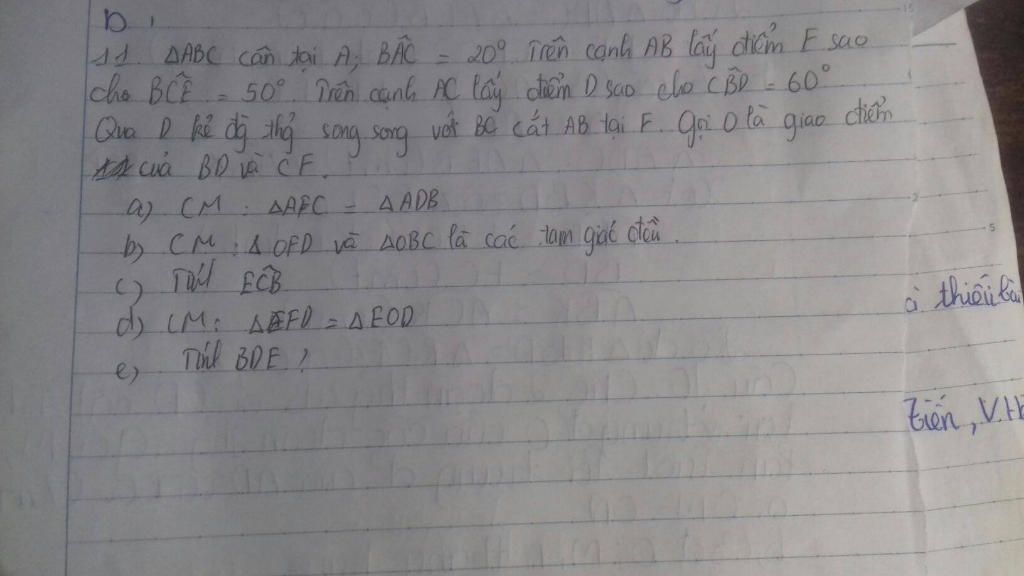 D,
11. ΔABC cân tại A; BÂC = 20° Trên cạnh AB lấy điểm E sao
cho BĈE = 50°. Trên cạnh AC lấy điểm D sao cho CB̂D = 60°
Qua D kẻ đg thg song song với BC cắt AB tại F. Gọi O là giao điểm
của BD và CF.
a) CM: ΔAFC = ΔADB
b) CM: ΔOFD và ΔOBC là các tam giác đều.
c) Tính EĈB
d) CM: ΔEFD = ΔEOD
e) Tính BDE?
à thiếu
tiến, V.